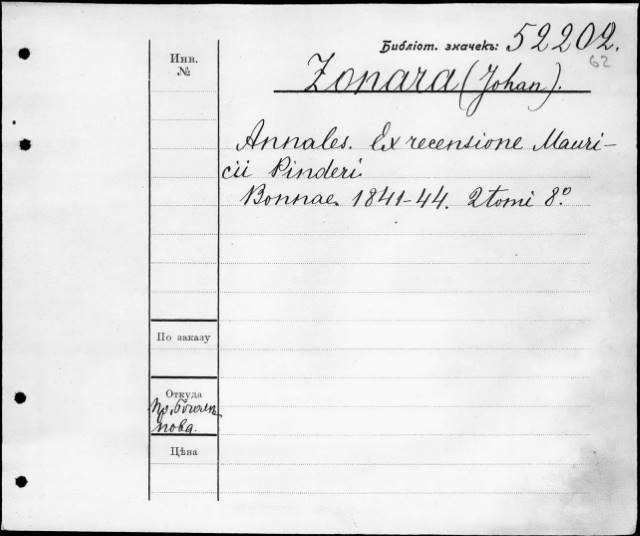 Библіот. значекъ: 52202.
62
Инв.
№
Zonara (Johan).
Annales. Ex recensione Mauri-
cii Pinderi.
Bonnae. 1841-44. 2 tomi 8°.
По заказу
Откуда
пр.
пова.
Цѣна